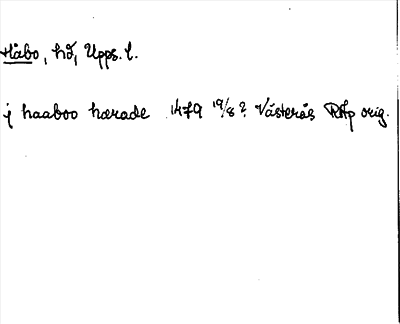 Håbo, hd, Upps. l.
j haaboo hærade 1479 19/8? Västerås RAp orig.